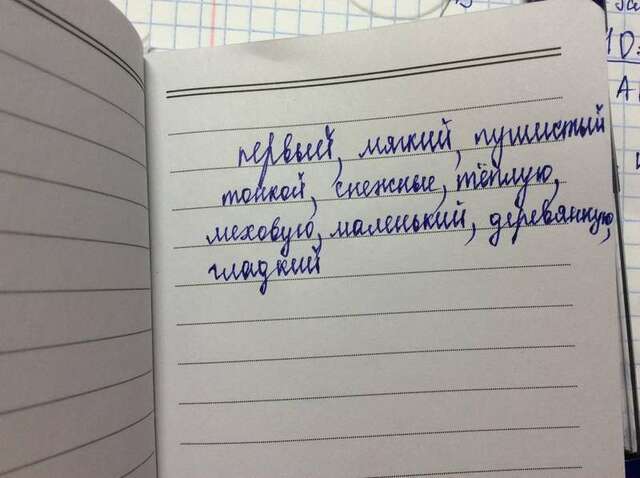 первый, мягкий, пушистый
тонкой, снежные, тёплую,
меховую, маленький, деревянную,
гладкий